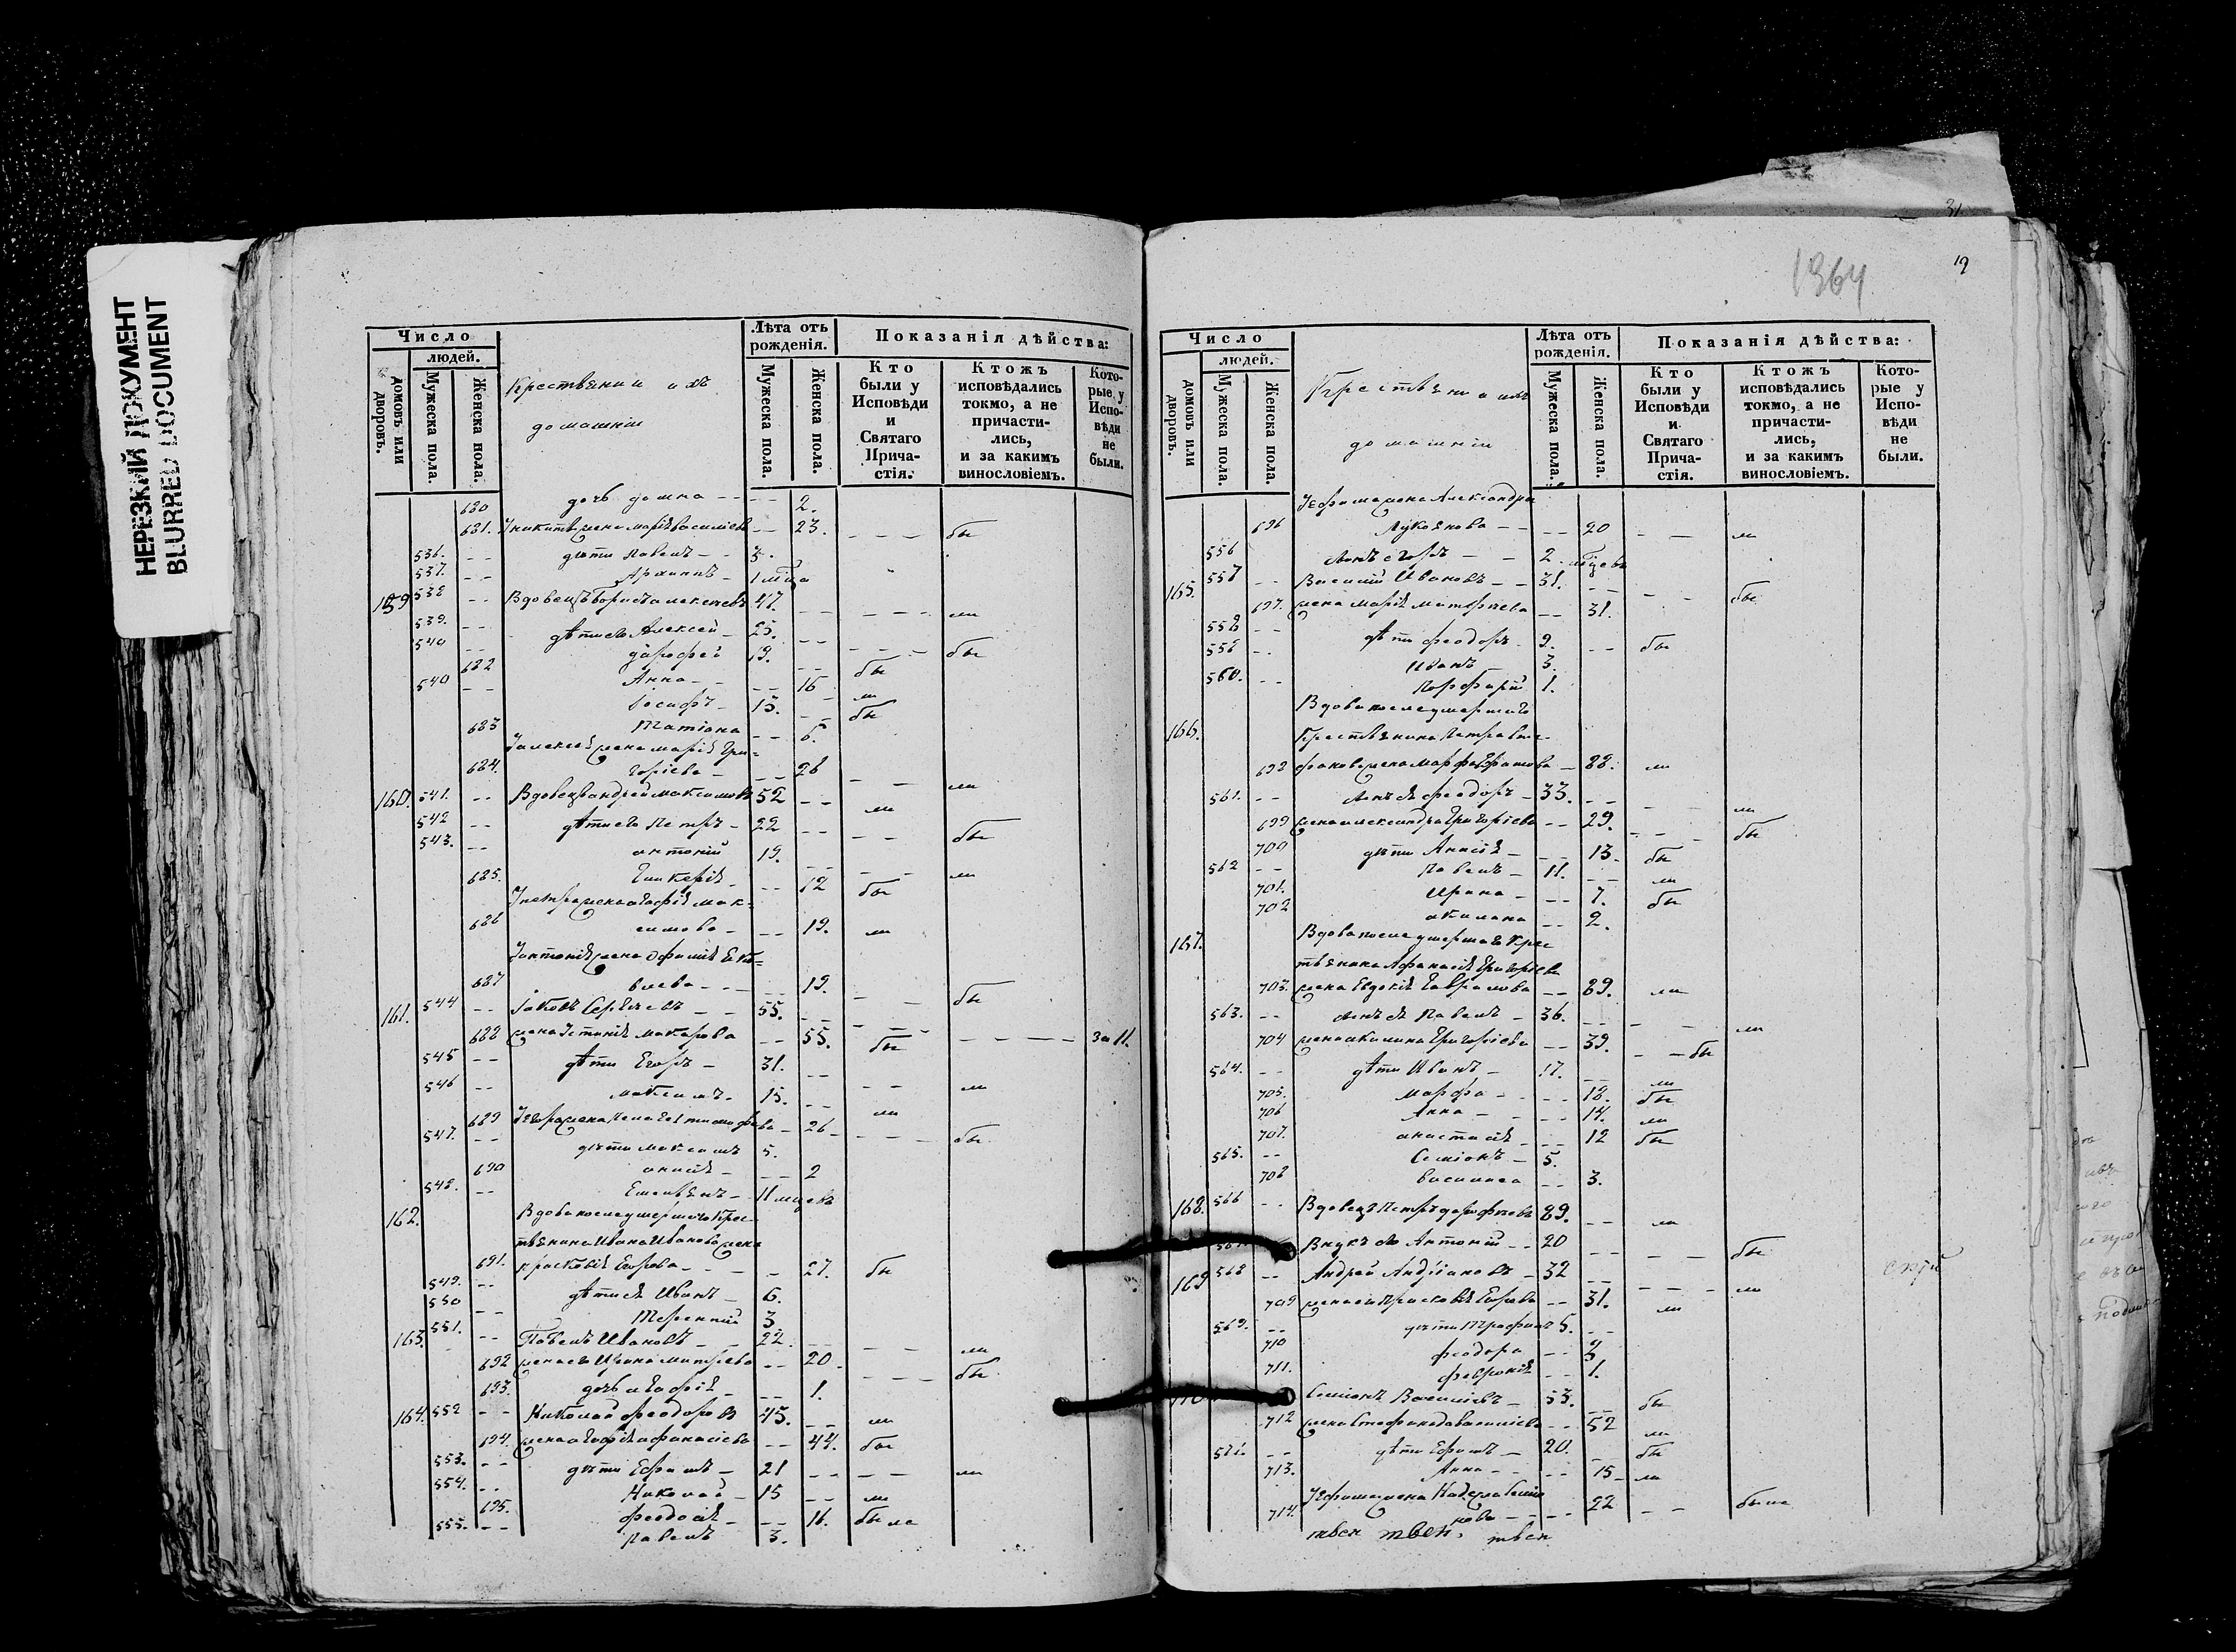 НЕРЕЗКИЙ ДОКУМЕНТ
BLURRED DOCUMENT
Число
людей.
домовъ или дворовъ.
Мужеска пола.
Женска пола.
Крестьяни и ихъ
домашніи
Лѣта отъ рожденія.
Мужеска пола.
Женска пола.
Показанія дѣйства:
Кто были у Исповѣди и Святаго Прича-стія.
Ктожъ исповѣдались токмо, а не причасти-лись, и за какимъ винословіемъ.
Кото-рые у Испо-вѣди не были.
680 дочь домна - - - - 2.
681. Уникиты жена марія василіева - - 23. - - - бы
536. - - дѣти Павелъ - - 3.
537. - - Архиппъ - 1 мѣца
159 538 - - Вдовецъ 47. - - - - ли
539. - - дѣти его Алексей - 25. - - - - - бы
540 - - дорофей 19. - - бы
682 Анна - - - - 16 - ли
540 - - Іосифъ - 13. - - бы
683 Татіана - - 6.
Уалексея жена марія Гри-
684. горіева - - - 26 - - ли
160. 541. - - Вдовецъ андрей максимовъ 52 - - ли
542 - - дѣти его Петръ - 22 - - - - бы
543. - - антоній 19. - - - - ли
685. Гликерія - - 12 бы
Упетра жена агафія мак-
686 симова - - - 19. ли
Уантонія жена Еѵфимія Іако-
687 влева - - - - 19. - - бы
161. 544 - - Іаковъ Сергеевъ - - 55. - - - - -
688 жена Устинія макарова - - 55. бы - - - - За 11.
545 - - дѣти Егоръ - 31. - - - - ли
546 - - максимъ - 15. - - ли
689 Уегора жена Пелагея тимофеева - 26 - - - - бы
547. - - дѣти максимъ 5.
690 анисія - - - 2
548. - - Емельянъ - 11 мцевъ
162. Вдова после умершаго крес-
тьянина Ивана Иванова жена
691. прасковія Егорова - - - - 27. бы
549. - - дѣти ея Иванъ - 6.
550 - - Терентій 3
163. 551. - - Павелъ Ивановъ - - 22. - - - - ли
692 жена его Ирина митрева - - 20 - - - - бы
693. дочь агафія - - - 1.
164. 552 - - Николай феодоровъ 45. - - ли
694. жена агафія афанасіева - - 44. бы
553. - - дѣти Ефимъ - 21 - - - - ли
554. - - Николай - 15 - - ли
695. феодосія - - - 16. была
555. - - Павелъ 3.
1964
19
31
Число
людей.
домовъ или дворовъ.
Мужеска пола.
Женска пола.
Крестьяни и ихъ
домашніи
Лѣта отъ рожденія.
Мужеска пола.
Женска пола.
Показанія дѣйства:
Кто были у Исповѣди и Святаго Прича-стія.
Ктожъ исповѣдались токмо, а не причасти-лись, и за какимъ винословіемъ.
Кото-рые у Испо-вѣди не были.
Уефима жена Александра
696 Лукянова - - - - 20 - - ли
556 сынъ Егоръ - - 2. мѣцевъ
165. 557 - - Василій Ивановъ - - 31. - - - - бы
697. жена марія матфеева - - 31.
558 - - дѣти феодоръ - 9. - - бы
558 - - Иванъ 3.
560. - - Порфирій 1.
166. Вдова после умершаго
Крестьянина Петра
698 жена марфа - 88. ли
561. - - сынъ ея феодоръ - 33. - - - - ли
699 жена александра Григоріева - - 29. - - - бы
700 дѣти Анисія - - - 13. бы
562 - - Павелъ - 11. - - ли
701. Ирина - - - 7. бы
702 акилина - - 2.
167. Вдова после умершаго Крес-
тьянина Афанасія Григорьева
703. жена Евдокія Гаврилова - - 89. ли
563. - - сынъ ея Павелъ - 36. - - - - ли
704 жена акилина Григоріева - - 39. - - бы
564. - - дѣти Иванъ - 17. - - ли
705. марфа - - - 18. бы
706 Анна - - - - 14. ли
707. анастасія - - - 12 бы
565. - - Семіонъ - 5.
708 василиса - - 3.
168. 566 - - Вдовецъ Петръ дорофеевъ 89. - - ли
Внукъ его Антоній - - 20 - - - - бы
169 568 - - Андрей Андріановъ - 32 - - - - ли
709 жена его Прасковія Егорова - - 31. ли
569. - - дѣти Трофимъ 5. - -
710 феодора - - 3
711. февронія - - 1.
Семіонъ Васильевъ - 53. - - бы
712 жена Стефанида василіева - - 52 ли
571. - - дѣти Ефимъ - 20. - бы
713. Анна - - - - 15 - ли
Уефима жена Надежда Семіо-
714. нова - - - - 22 - - была
твен твен, твен